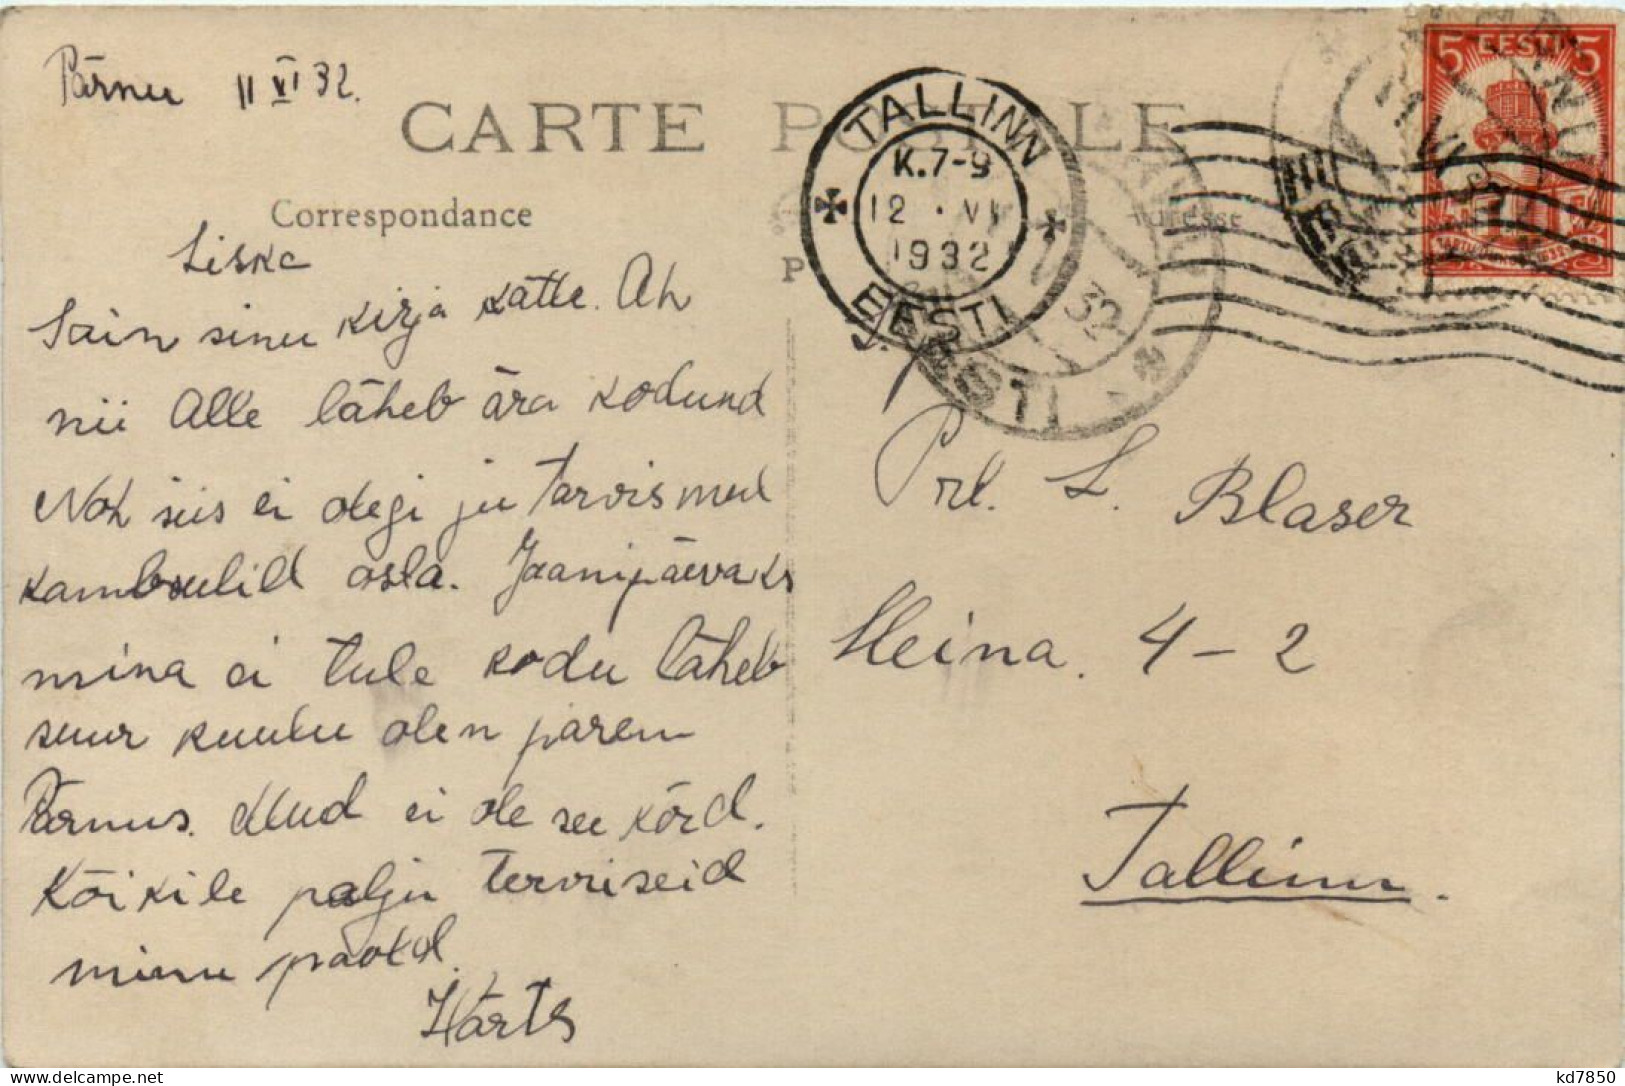 Pärnu 11 VI 32.
CARTE POSTALE
Correspondance
Adresse
Liska
Sain sinu kirja kätte. Ah
nii Alle läheb ära kodund
Noh siis ei olegi ju tarvis mul
kambsulid osta. Jaanipäevaks
mina ei tule kodu läheb
suur kuulu olen parem
Pärnus. Muud ei ole see kõrd.
Kõikile palju terviseid
minu poolt.
Härts
TALLINN
K.7-9
12 · VI
1932
EESTI
5 EESTI 5
PÄRNU
EESTI
32
Prl. L. Blaser
Heina. 4 - 2
Tallinn.
kd7850